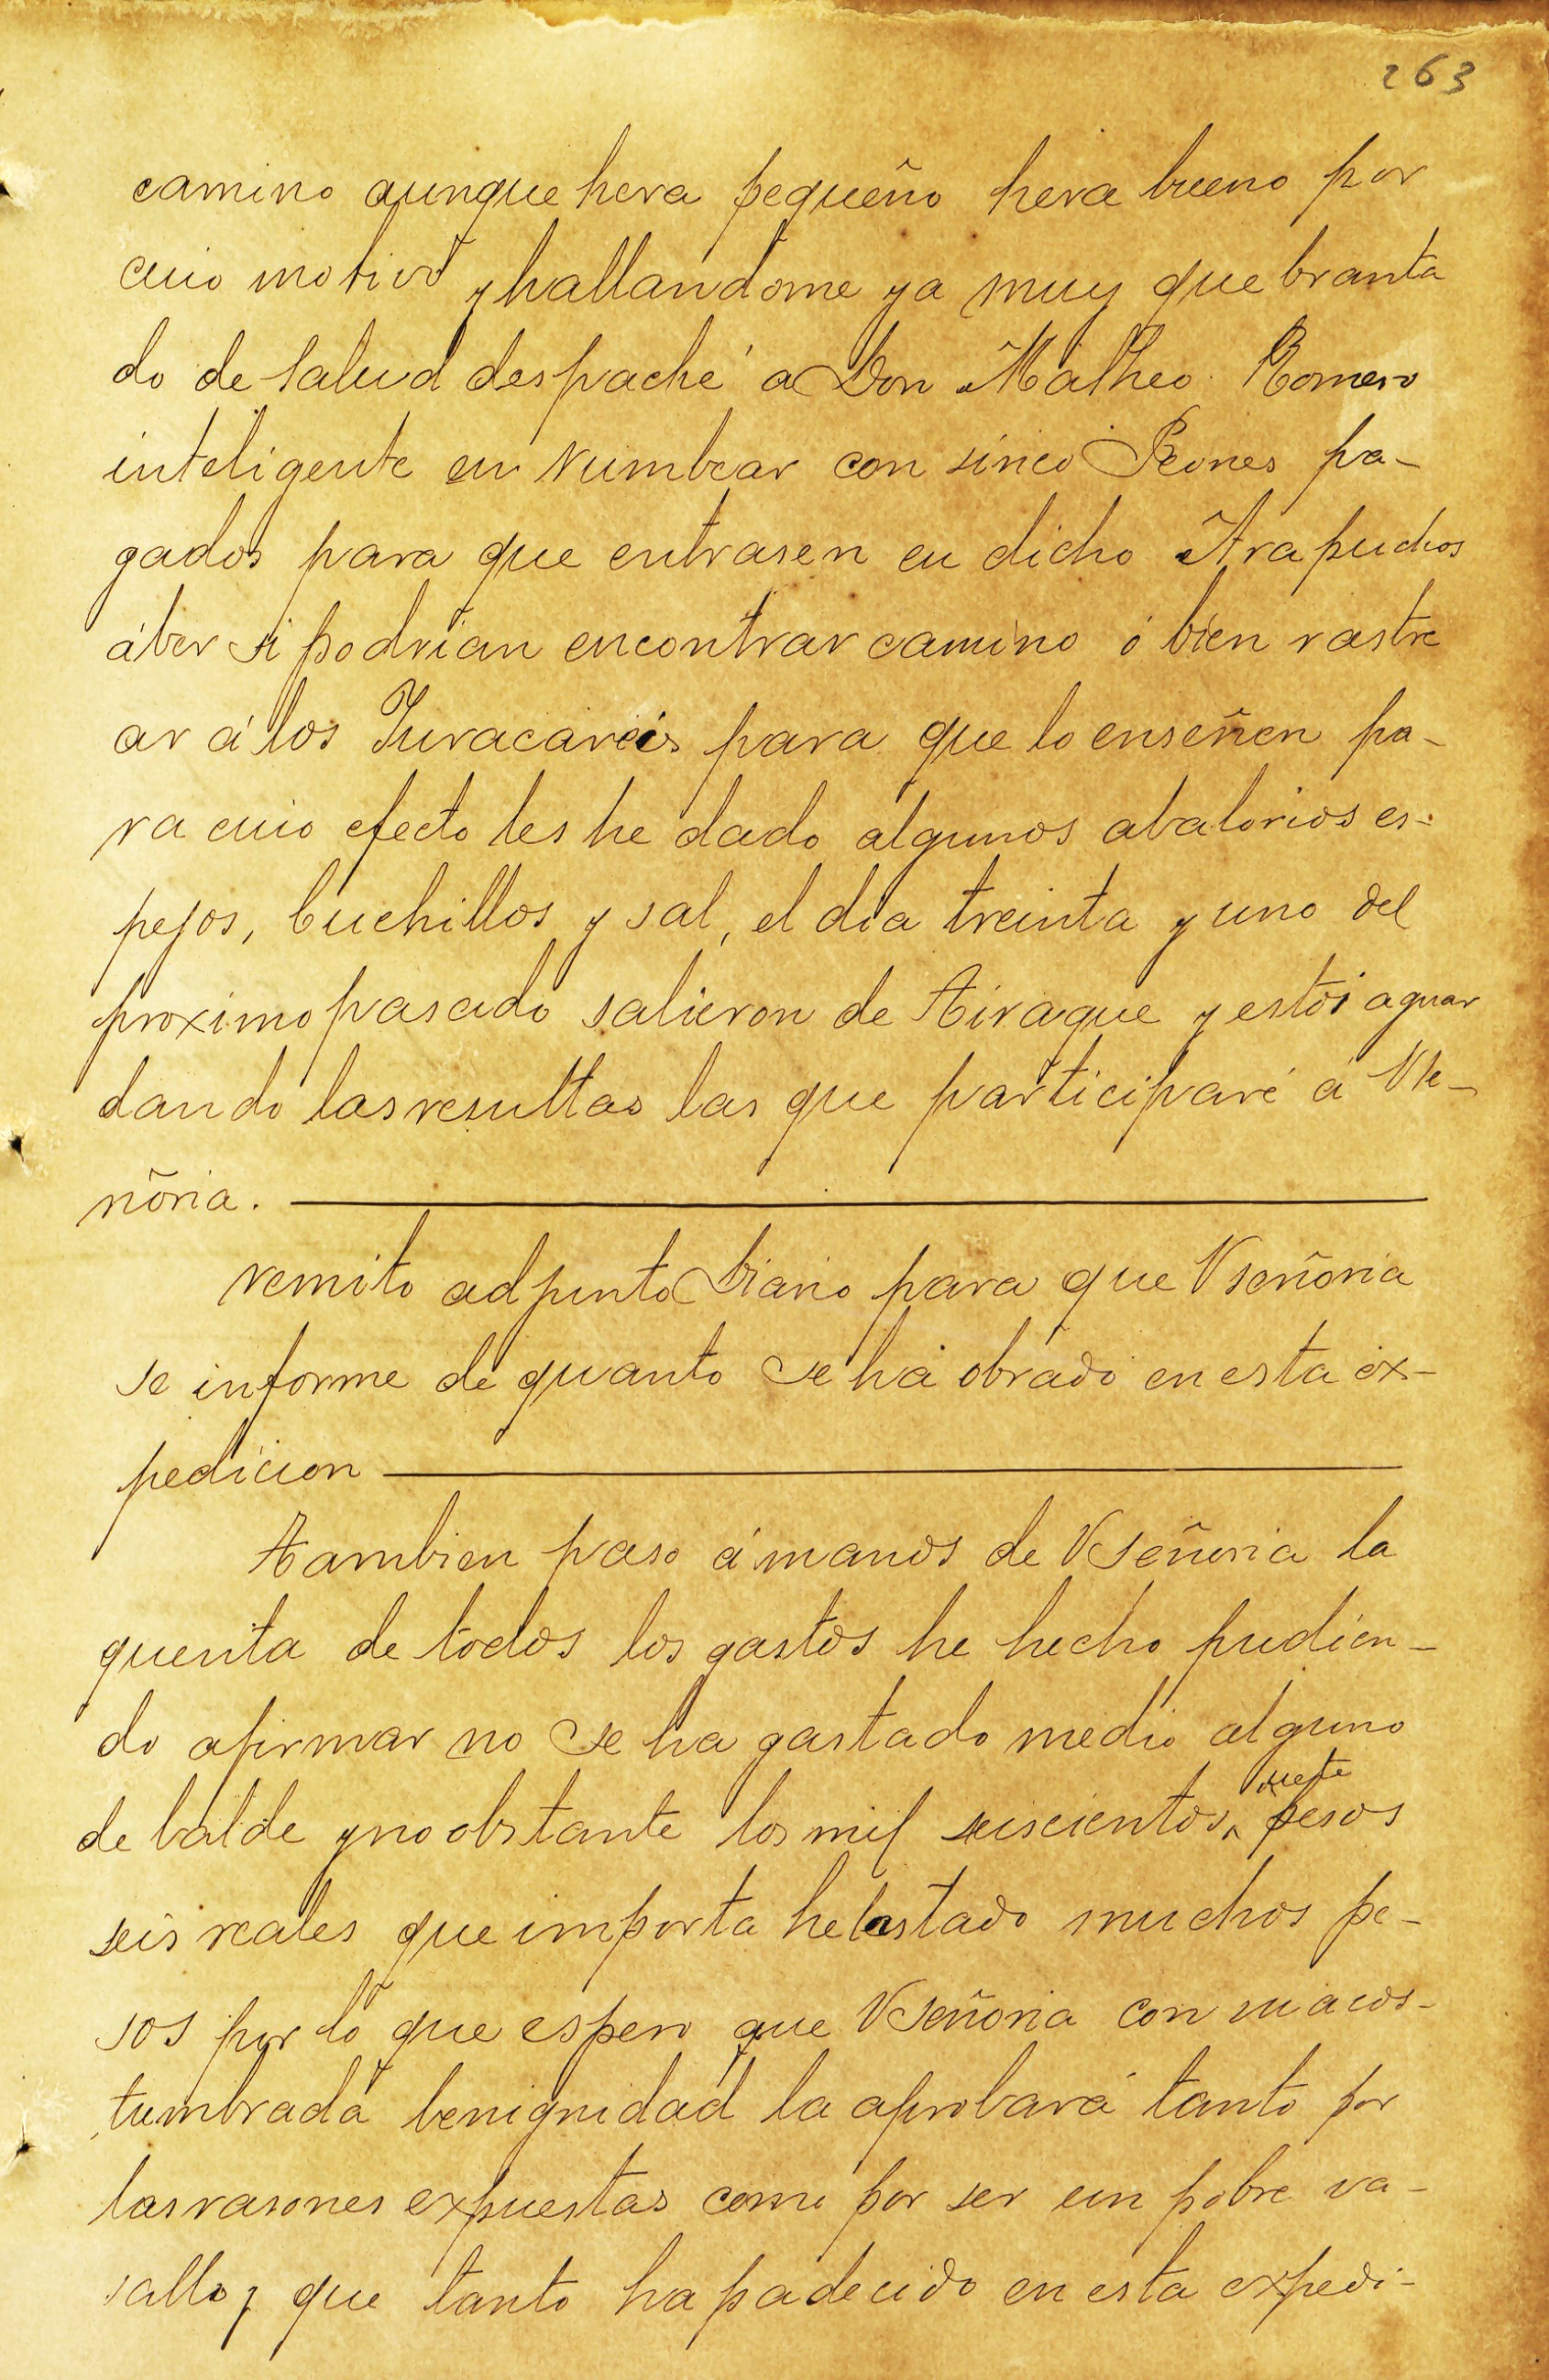 263
camino aunque hera pequeño hera bueno por
cuio motivo y hallandome ya muy quebranta
do de salud despaché a Don Matheo Romero
inteligente en rumbear con sinco Peones pa-
gados para que entrasen en dicho Arapuchos
áber si podrian encontrar camino ó bien rastre
ar á los Yuracareis para que lo enseñen pa-
ra cuio efecto les he dado algunos abalorios es-
pejos, Cuchillos y sal, el dia treinta y uno del
proximo pasado salieron de Tiraque y estoi aguar
dando las resultas las que participaré á Vse-
ñoria.
remito adjunto Diario para que Vseñoria
se informe de quanto se há obrado en esta ex-
pedicion
Tambien paso á manos de Vseñoria la
quenta de todos los gastos he hecho pudien-
do afirmar no se ha gastado medio alguno
de balde y no obstante los mil seiscientos siete pesos
seis reales que importa he lastado muchos pe-
sos por lo que espero que Vseñoria con su acos-
tumbrada benignidad la aprobará tanto por
las rasones expuestas como por ser un pobre va-
sallo y que tanto ha padecido en esta expedi-